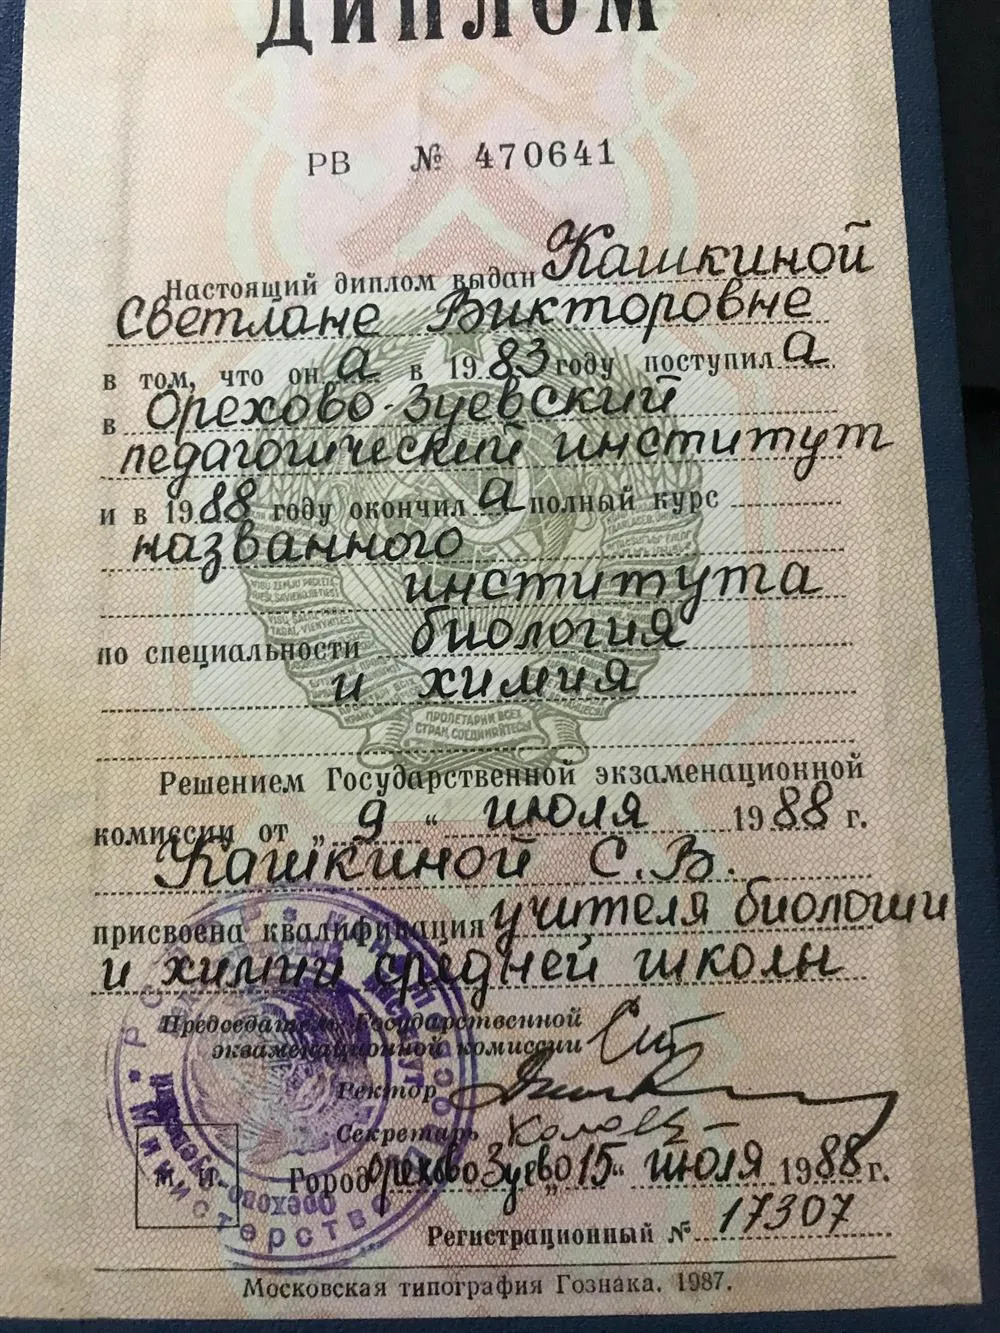 ДИПЛОМ
РВ № 470641
Настоящий диплом выдан Кашкиной
Светлане Викторовне
в том, что он а в 1983 году поступил а
в Орехово-Зуевский
педагогический институт
и в 1988 году окончил а полный курс
названного
института
по специальности биология
и химия
ПРОЛЕТАРИИ ВСЕХ
СТРАН, СОЕДИНЯЙТЕСЬ!
Решением Государственной экзаменационной
комиссии от „ 9 “ июля 1988 г.
Кашкиной С. В.
присвоена квалификация учителя биологии
и химии средней школы
Председатель Государственной
экзаменационной комиссии
Ректор
Секретарь
М. П.
Город Орехово Зуево „15“ июля 1988 г.
Регистрационный № 17307
Московская типография Гознака. 1987.